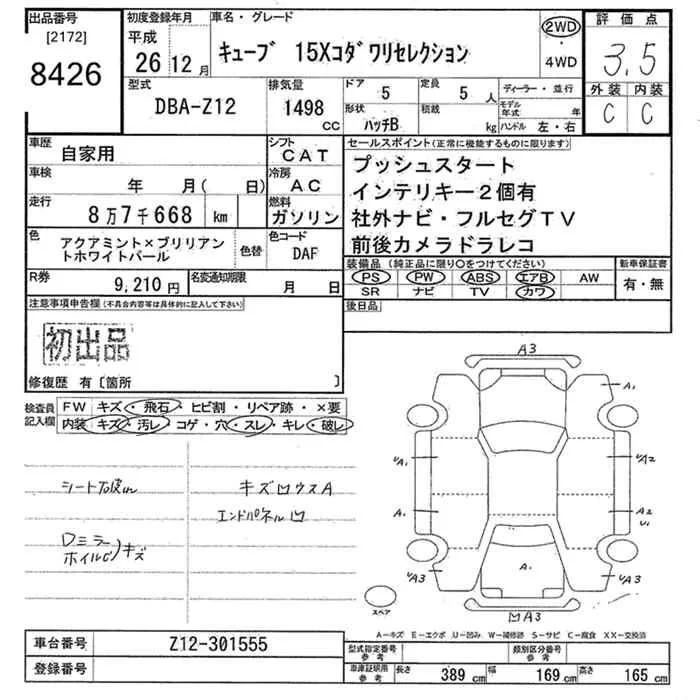 出品番号
[2172]
8426
初度登録年月
平成
26 12 月
車名・グレード
キューブ 15Xコダワリセレクション
2WD
・
4WD
評価点
3.5
外装 内装
C C
型式
DBA-Z12
排気量
1498
CC
ドア
5
定員
5 人
形状
ハッチB
積載
kg
ディーラー・並行
モデル年式
年
ハンドル 左・右
車歴
自家用
シフト
CAT
車検
年 月( 日)
冷房
AC
走行
8万7千668 km
燃料
ガソリン
色
アクアミント×ブリリアン
トホワイトパール
色替
色コード
DAF
R券
9,210 円
名変通知期限
月 日
セールスポイント(正常に機能するものに限ります)
プッシュスタート
インテリキー2個有
社外ナビ・フルセグTV
前後カメラドラレコ
装備品 (純正品に限り○をつけてください)
PS PW ABS エアB AW
SR ナビ TV カワ
新車保証書
有・無
後日品
注意事項申告欄(不具合内容等は具体的に記入して下さい)
初出品
修復歴 有〔箇所 〕
検査員
記入欄
FW キズ・飛石・ヒビ割・リペア跡・×要
内装 キズ・汚レ・コゲ・穴・スレ・キレ・破レ
キズ凹ウスA
エンドパネル凹
ミラー
ホイルC)キズ
A3
A1
UA1
UA2
A1
A2
U1
A1
UA3
UA3
凹A3
スペア
A―キズ E―エクボ U―凹み W―補修跡 S―サビ C―腐食 XX―交換済
車台番号
Z12-301555
登録番号
型式指定番号
参考
類別区分番号
参考
車庫証明用
参考
長さ 389 cm 幅 169 cm 高さ 165 cm